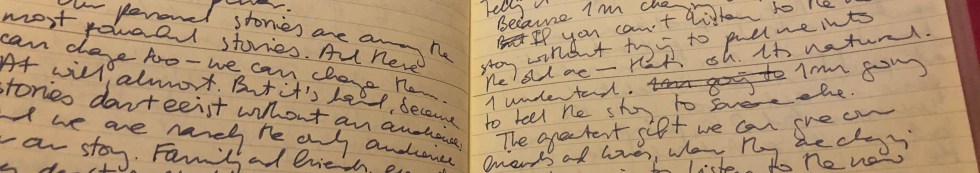 our personal stories are among the
most powerful stories. And these
can change too – we can change them.
At will, almost. But it's hard, because
stories don't exist without an audience.
And we are rarely the only audience
our story. Family and friends,
Because I'm
But If you can't listen to the new
story without trying to pull me into
the old one – that's ok. Its natural.
I understand. I am going to I am going
to tell the story to someone else.
The greatest gift we can give our
friends and lovers, when they are changing,
listen to the new